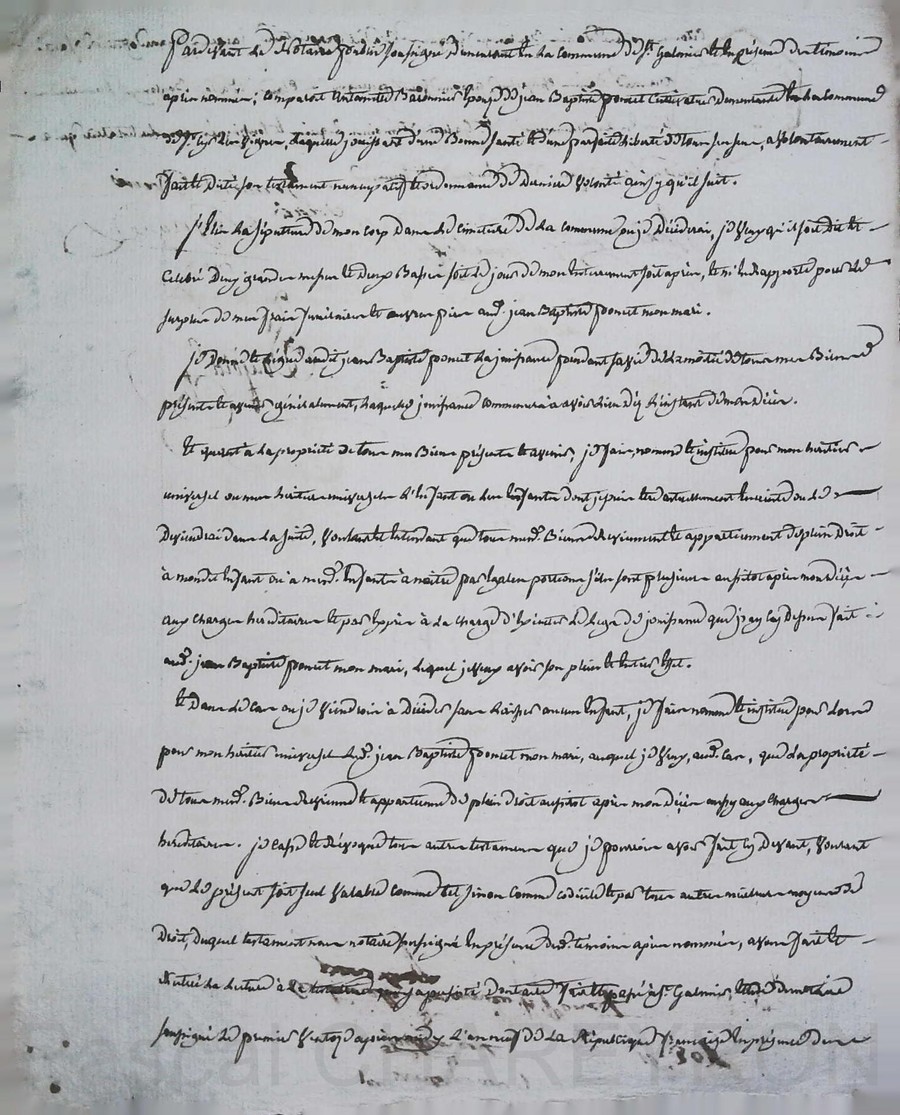 Pardevant le Notaire public soussigné demeurant en la commune de St. Galmier et en présence des témoins
après nommés, comparoit Antoinette épouze de jean Baptiste poncet Cultivateur demeurante en la commune
de St. laquelle jouissant d'une Bonne santé et d'une parfaite liberté de tous ses sens, a volontairement
fait et dicté son testament nuncupatif et ordonnance de Dernière volonté ainsy qu'il suit.
j'Elis la sépulture de mon corp dans le cimetière de la commune ou je Décéderai, je veux qu'il soit dit et
célébré Deux grandes messes et deux Basses soit le jour de mon Enterrement soit après, et m'en rapporte pour le
surplus de mes frais funéraires et œuvres pies aud. jean Baptiste poncet mon mari.
je Donne et lègue audit jean Baptiste poncet la jouissance pendant sa vie de la moitié de tous mes Biens
présents et avenir généralement, laquelle jouissance commencera à avoir lieu dez l'instant de mon Décès.
et quant à la propriété de tous mes Biens présents et avenir, je fais, nomme et institue pour mon héritier
universel ou mes héritiers universels l'Enfant ou les Enfants dont je puis être actuellement Enceinte ou le
Deviendrai dans la suite, voulant et Entendant que tous mesd. Biens reviennent et appartiennent de plein Droit
à mondit Enfant ou à mesd. Enfants à naitre par Egales portions s'ils sont plusieurs aussitot après mon décès
aux charges héréditaires et par Exprès à la charge d'Exécuter le legs de jouissance que j'ay cy Dessus fait
aud. jean Baptiste poncet mon mari, lequel je veux avoir son plein et Entier Effet.
et Dans le cas ou je viendrois à Décéder sans laisser aucun Enfant, je fais nomme et institue pour lors
pour mon héritier universel led. jean Baptiste poncet mon mari, auquel je veux, aud. cas, que la propriété
de tous mesd. Biens revienne et appartienne de plein droit aussitot après mon décès aussy aux charges
héréditaires. je casse et révoque tous autres testaments que je pourrois avoir fait cy Devant, voulant
que le présent soit seul valable comme tel sinon comme codicille et par tous autres meilleurs moyens de
Droit, Duquel testament nous notaire soussigné En présence desd. témoins après nommés, avons fait et
la lecture à la Dont acte fait et passé à St. Galmier, Etude du notaire
soussigné le premier ventose après midy l'an neuf de la République française En présence de